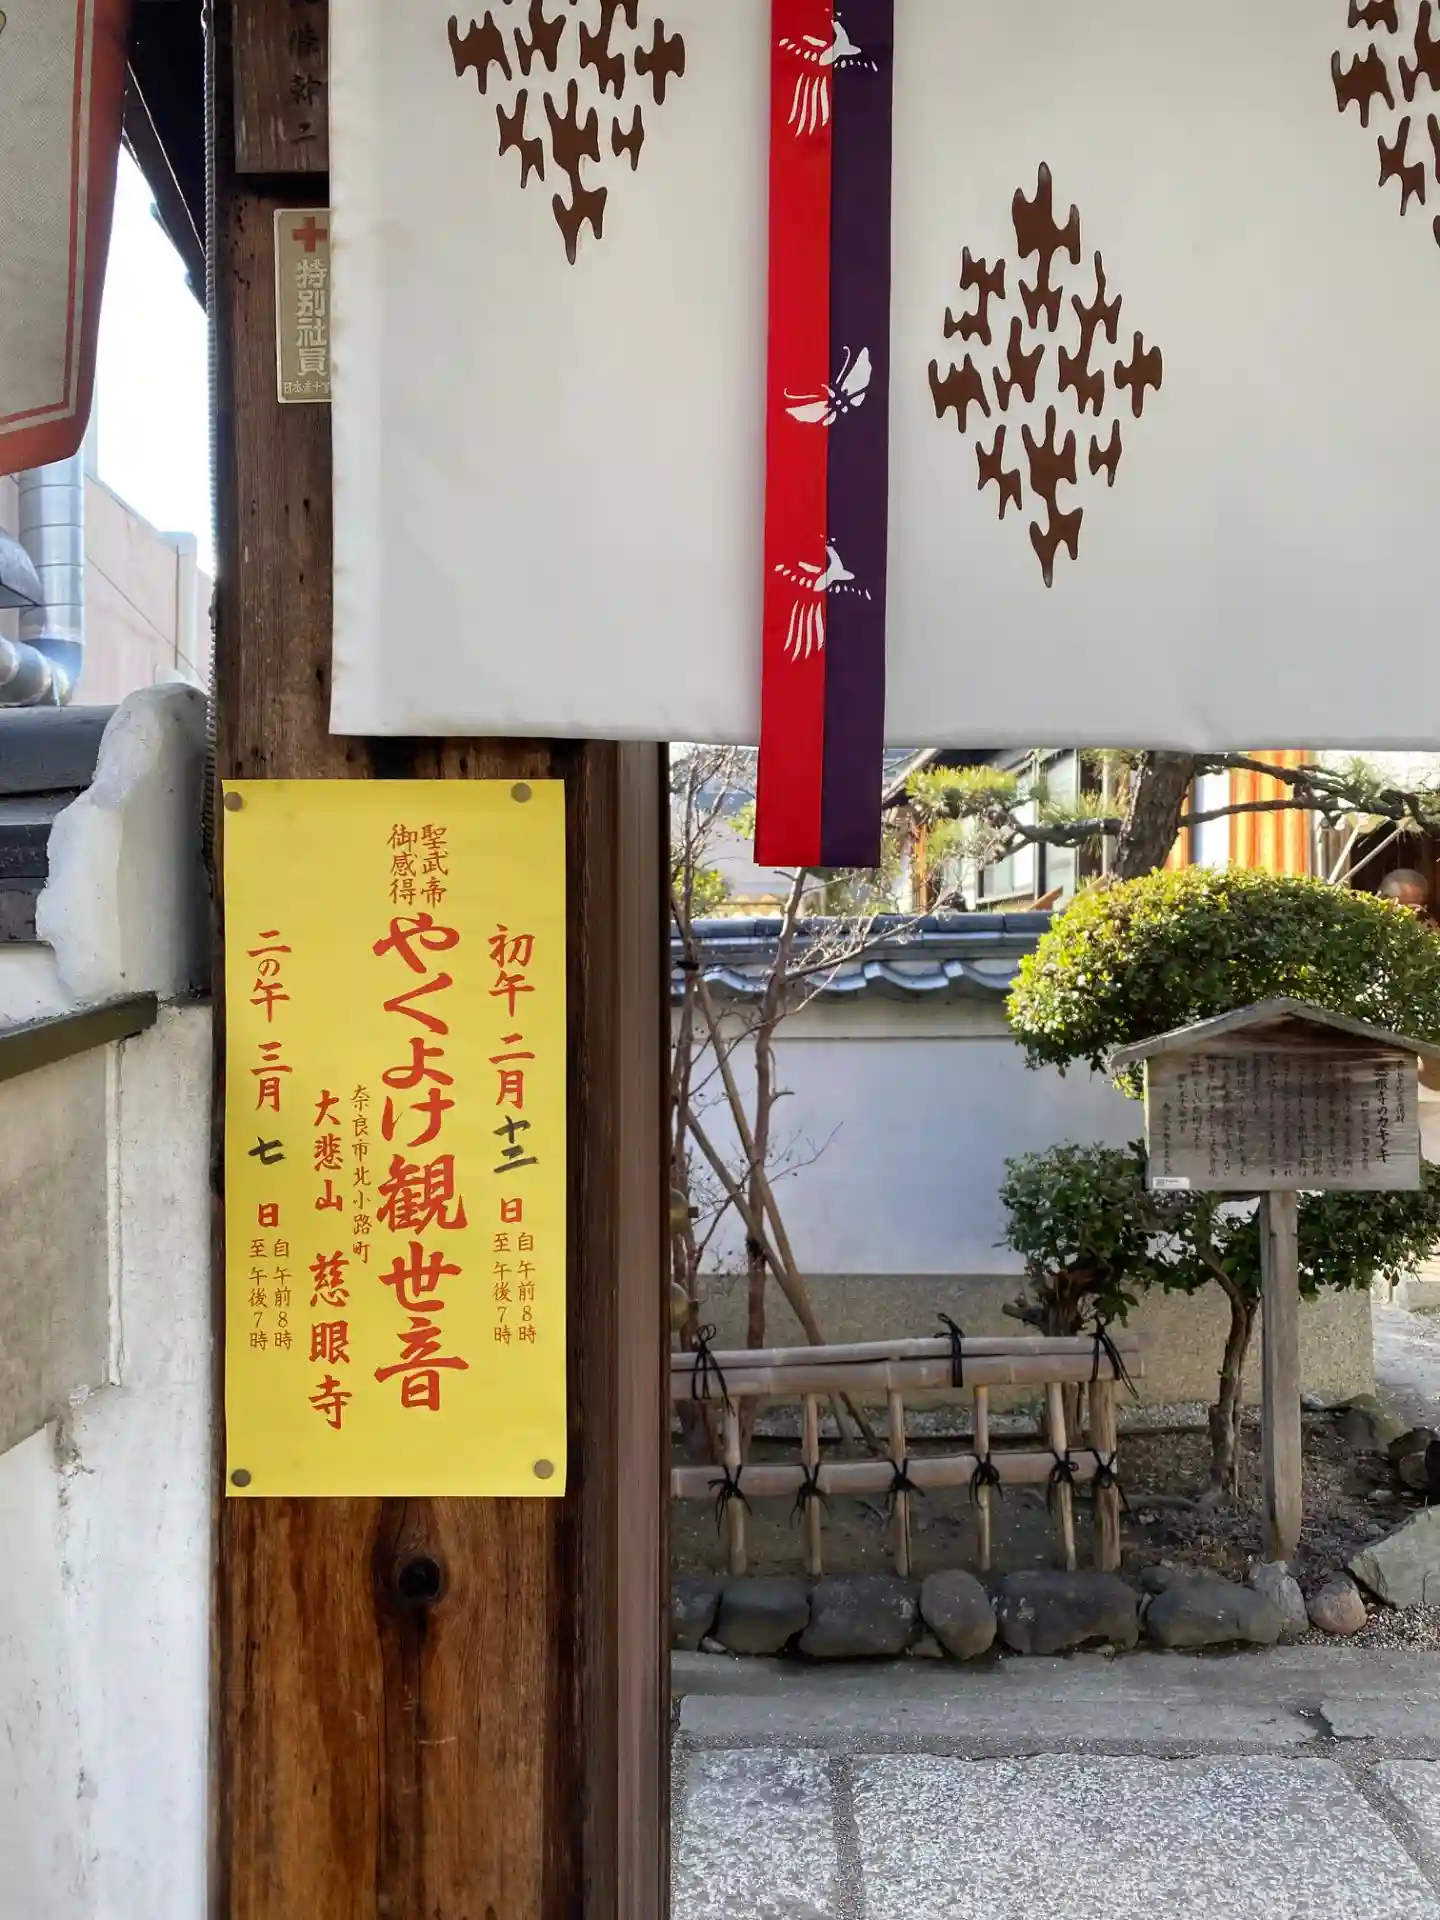 條幹二
特別社員
日本赤十字
初午 二月 十三 日 自午前8時
至午後7時
聖武帝
御感得
やくよけ観世音
奈良市北小路町
大悲山 慈眼寺
二の午 三月 七 日 自午前8時
至午後7時
慈眼寺のカキノキ